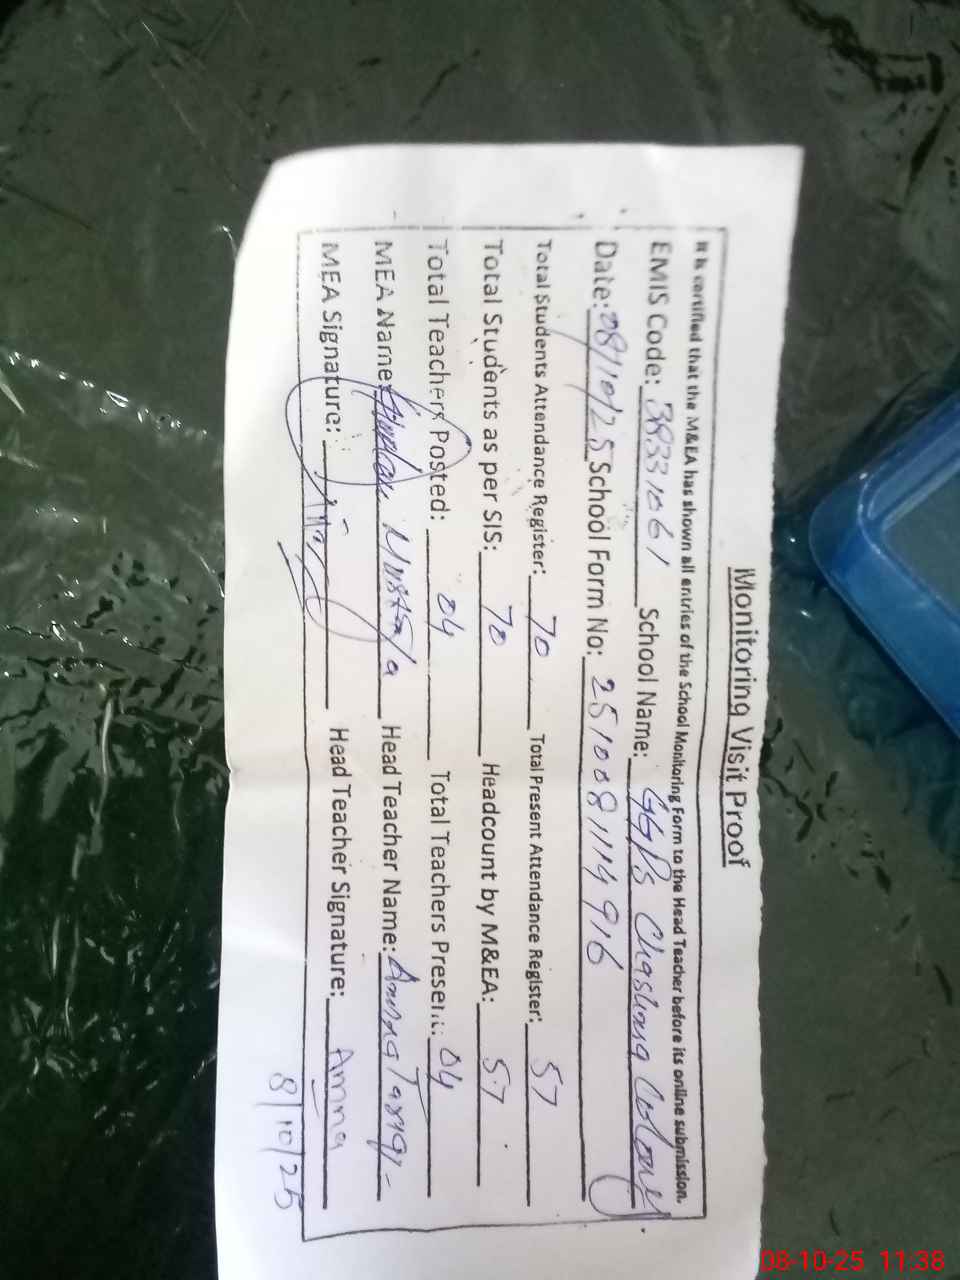 Monitoring Visit Proof
It is certified that the M&EA has shown all entries of the School Monitoring Form to the Head Teacher before its online submission.
EMIS Code: 38331061 School Name: GGPS Chashma Colony
Date: 08/10/25 School Form No: 2510081114916
Total Students Attendance Register: 70 Total Present Attendance Register: 57
Total Students as per SIS: 70 Headcount by M&EA: 57
Total Teachers Posted: 04 Total Teachers Present: 04
MEA Name: Mustafa Head Teacher Name: Amna Tariq
MEA Signature: Head Teacher Signature: Amna
8/10/25
08-10-25 11:38